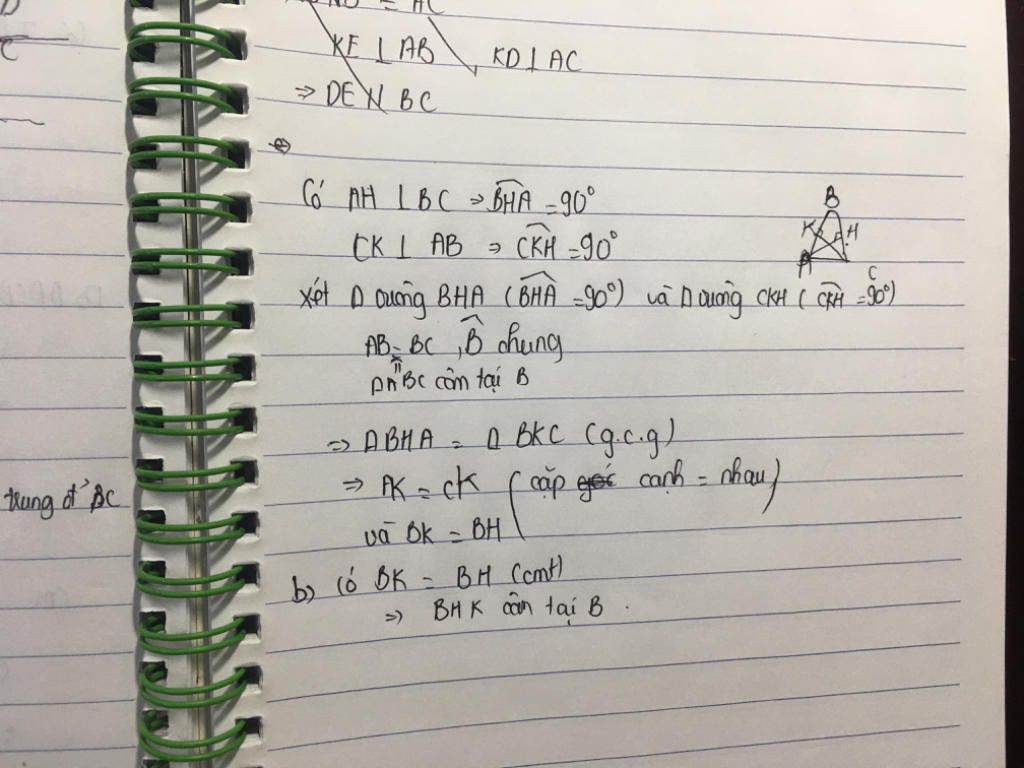 D
C
= AC
KE ⊥ AB , KD ⊥ AC
⇒ DE // BC
⇒
Có AH ⊥ BC ⇒ BHA = 90°
CK ⊥ AB ⇒ CKH = 90°
B
K H
A C
xét Δ vuông BHA (BHA = 90°) và Δ vuông CKH (CKH = 90°)
AB = BC , B chung
ΔABC cân tại B
⇒ ΔBHA = Δ BKC (g.c.g)
⇒ AK = CK (cặp góc cạnh = nhau)
và BK = BH
trung đ' BC
b) Có BK = BH (cmt)
⇒ BHK cân tại B .